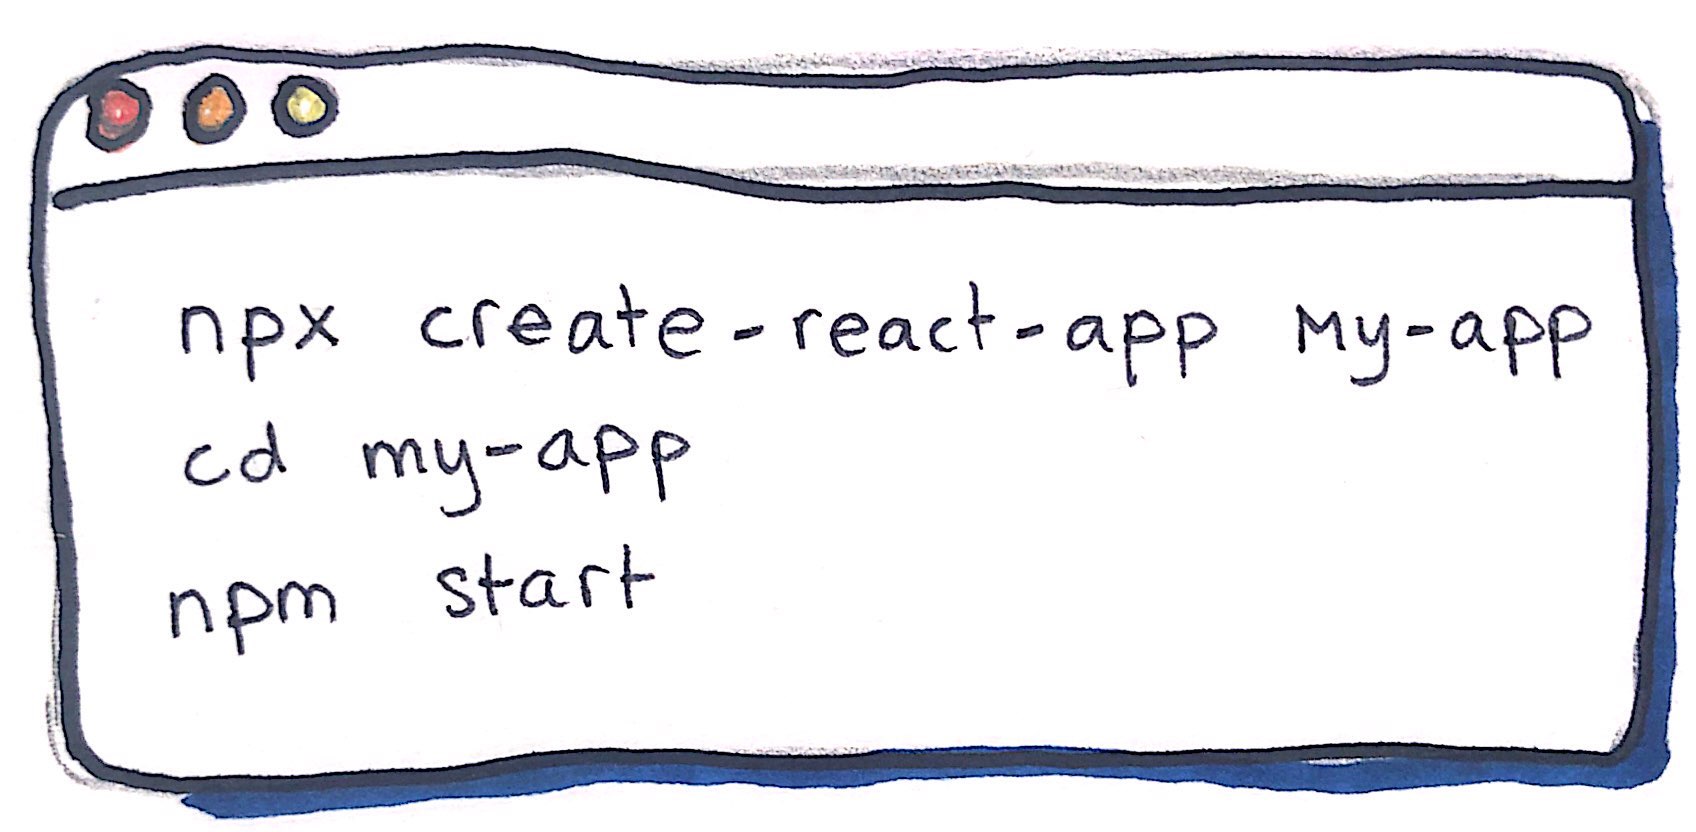 npx create-react-app my-app
cd my-app
npm start